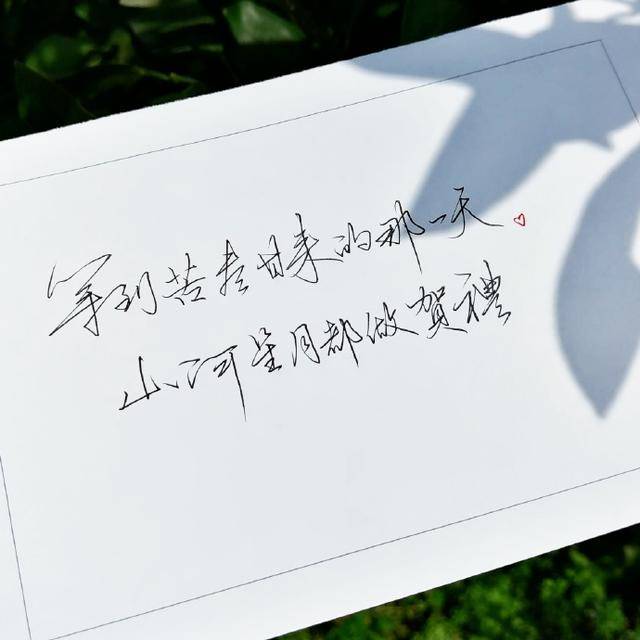 等到苦尽甘来的那一天
山河星月都做贺禮